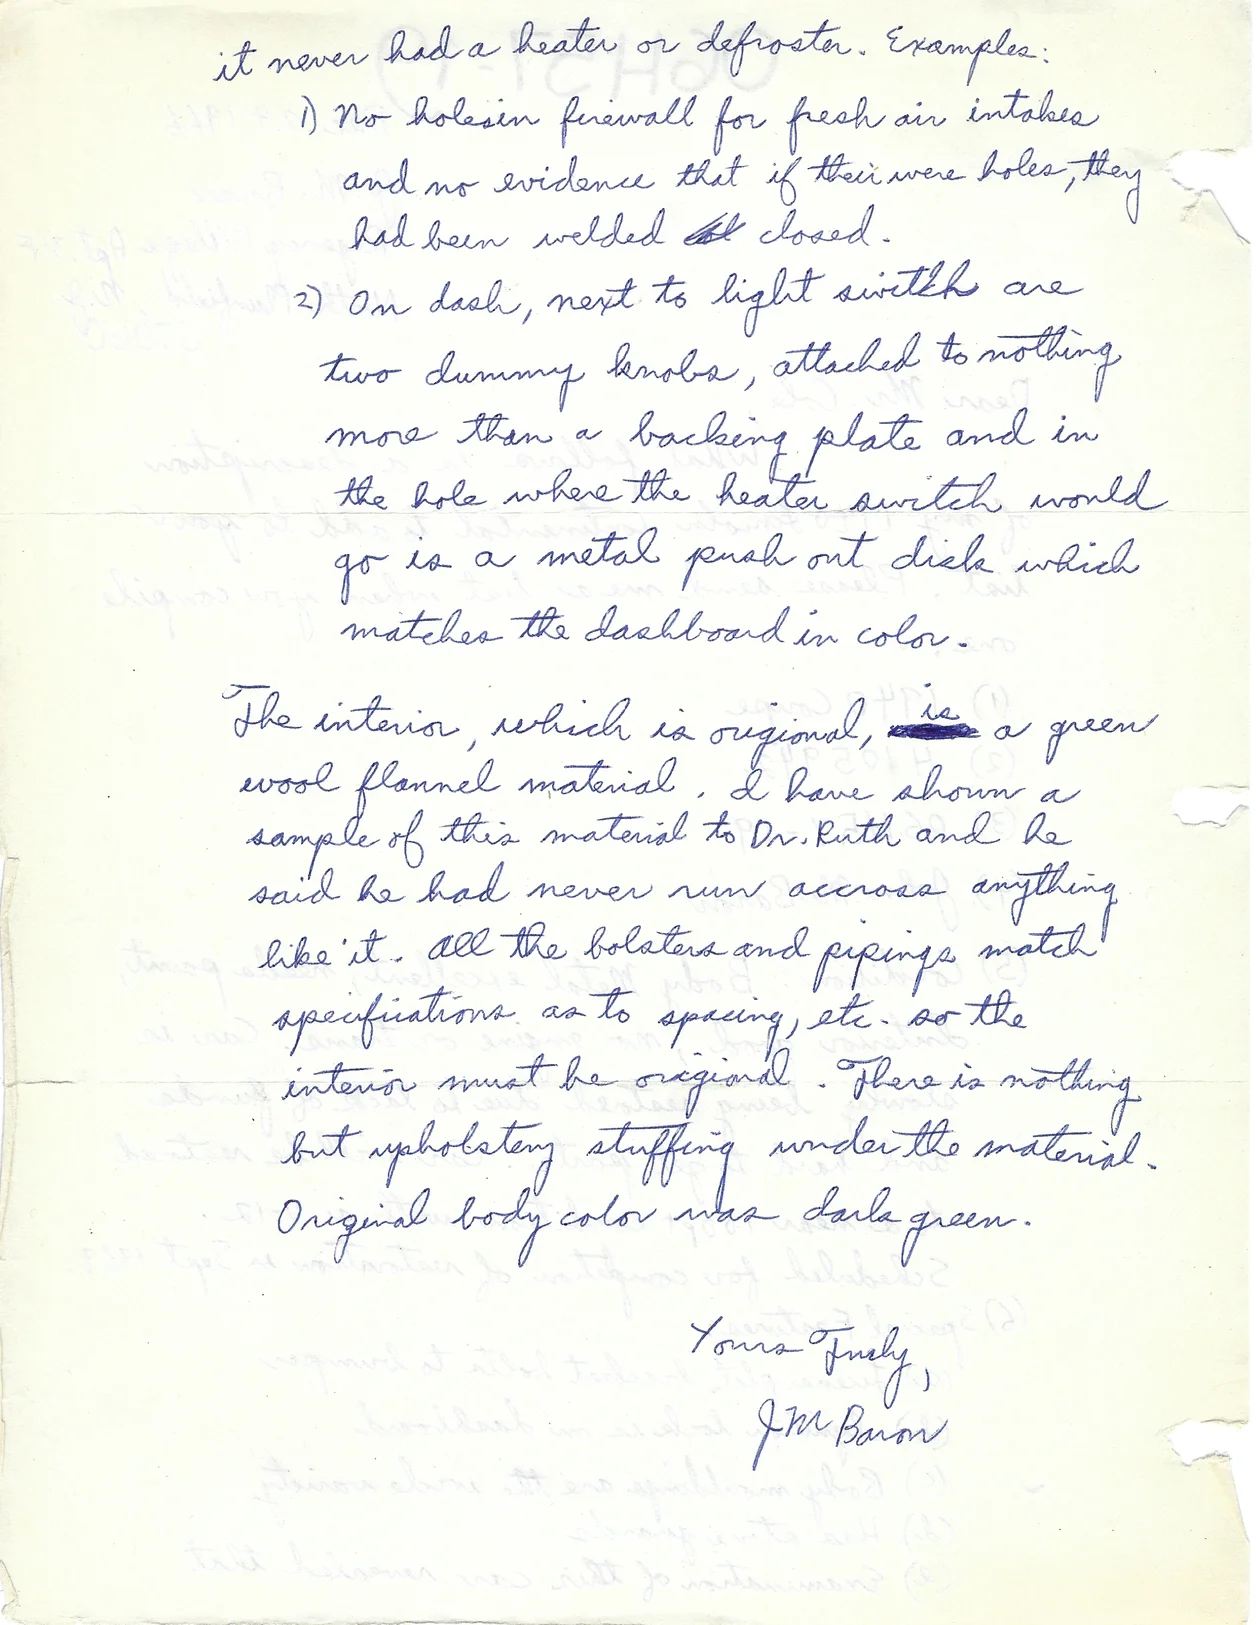 it never had a heater or defroster. Examples:
1) No holes in firewall for fresh air intakes
and no evidence that if their were holes, they
had been welded closed.
2) On dash, next to light switch are
two dummy knobs, attached to nothing
more than a backing plate and in
the hole where the heater switch would
go is a metal push out disk which
matches the dashboard in color.
The interior, which is origional, is a green
wool flannel material. I have shown a
sample of this material to Dr. Ruth and he
said he had never run accross anything
like it. All the bolsters and pipings match
specifications as to spacing, etc. so the
interior must be origional. There is nothing
but upholstery stuffing under the material.
Original body color was dark green.
Yours Truly,
JM Baron